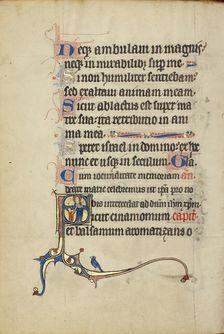 Neq; ambulaui in magnis
neq; in mirabilib; sup me
Si non humiliter sentiebam
sed exaltaui animam meam
Sicut ablactatus est super matre
sua ita retributio in ani
ma mea
Speret israel in domino ex hoc
nunc et usq; in seculum Gla
Cum iocunditate memoriam
beate marie celebremus ut ipsa pro no
bis intercedat ad dominum
Sicut cinamomum capit
et balsamum aromatizans o